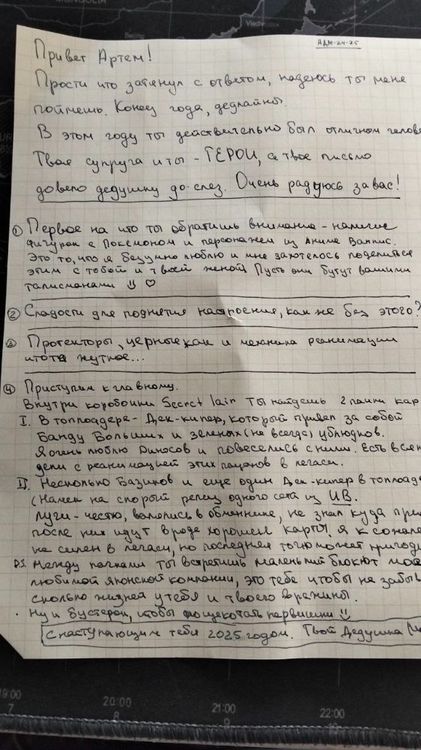 АДМ-24-25
Привет Артем!
Прости что затянул с ответом, надеюсь ты меня
поймешь. Конец года, дедлайны.
В этом году ты действительно был отличным
Твоя супруга и ты - ГЕРОИ, а твое письмо
довело дедушку до слез. Очень радуюсь за вас!
① Первое на что ты обратишь внимание - наличие
фигурок с Покемоном и персонажем из Аниме
Это то, что я безумно люблю и мне захотелось поделиться
этим с тобой и твоей женой. Пусть они будут вашими
талисманами ♡
② Сладости для поднятия настроения, как же без этого?
③ Протекторы, черные как и механика реанимации
нутное...
④ Приступим к главному.
Внутри коробочки Secret lair ты найдешь 2 пачки
I. В топлоадере - Дек-кипер, который привел за собой
Банду Больших и зеленых (не всегда) ублюдков.
Я очень люблю Диносов и повеселись с ними. Есть в
деки с реанимацией этих пацанов в легаси.
II. Несколько Базиков и еще один Дек-кипер в
(Намек на скорый репец одного сета из ИВ.
Луги - честно, валялись в обменнике, не знал куда
после них идут вроде хорошие карты, я к
не силен в легаси, но последняя точно может
P.S. Между пачками ты встретишь маленький блокнот
любимой японской компании, это тебе чтобы не
сколько жизней у тебя и твоего
• Ну и бустеры, чтобы пощекотать нервишки
С наступающим тебя 2025 годом. Твой Дедушка
19:00
20:00
21:00
22:00
7
8
9
10